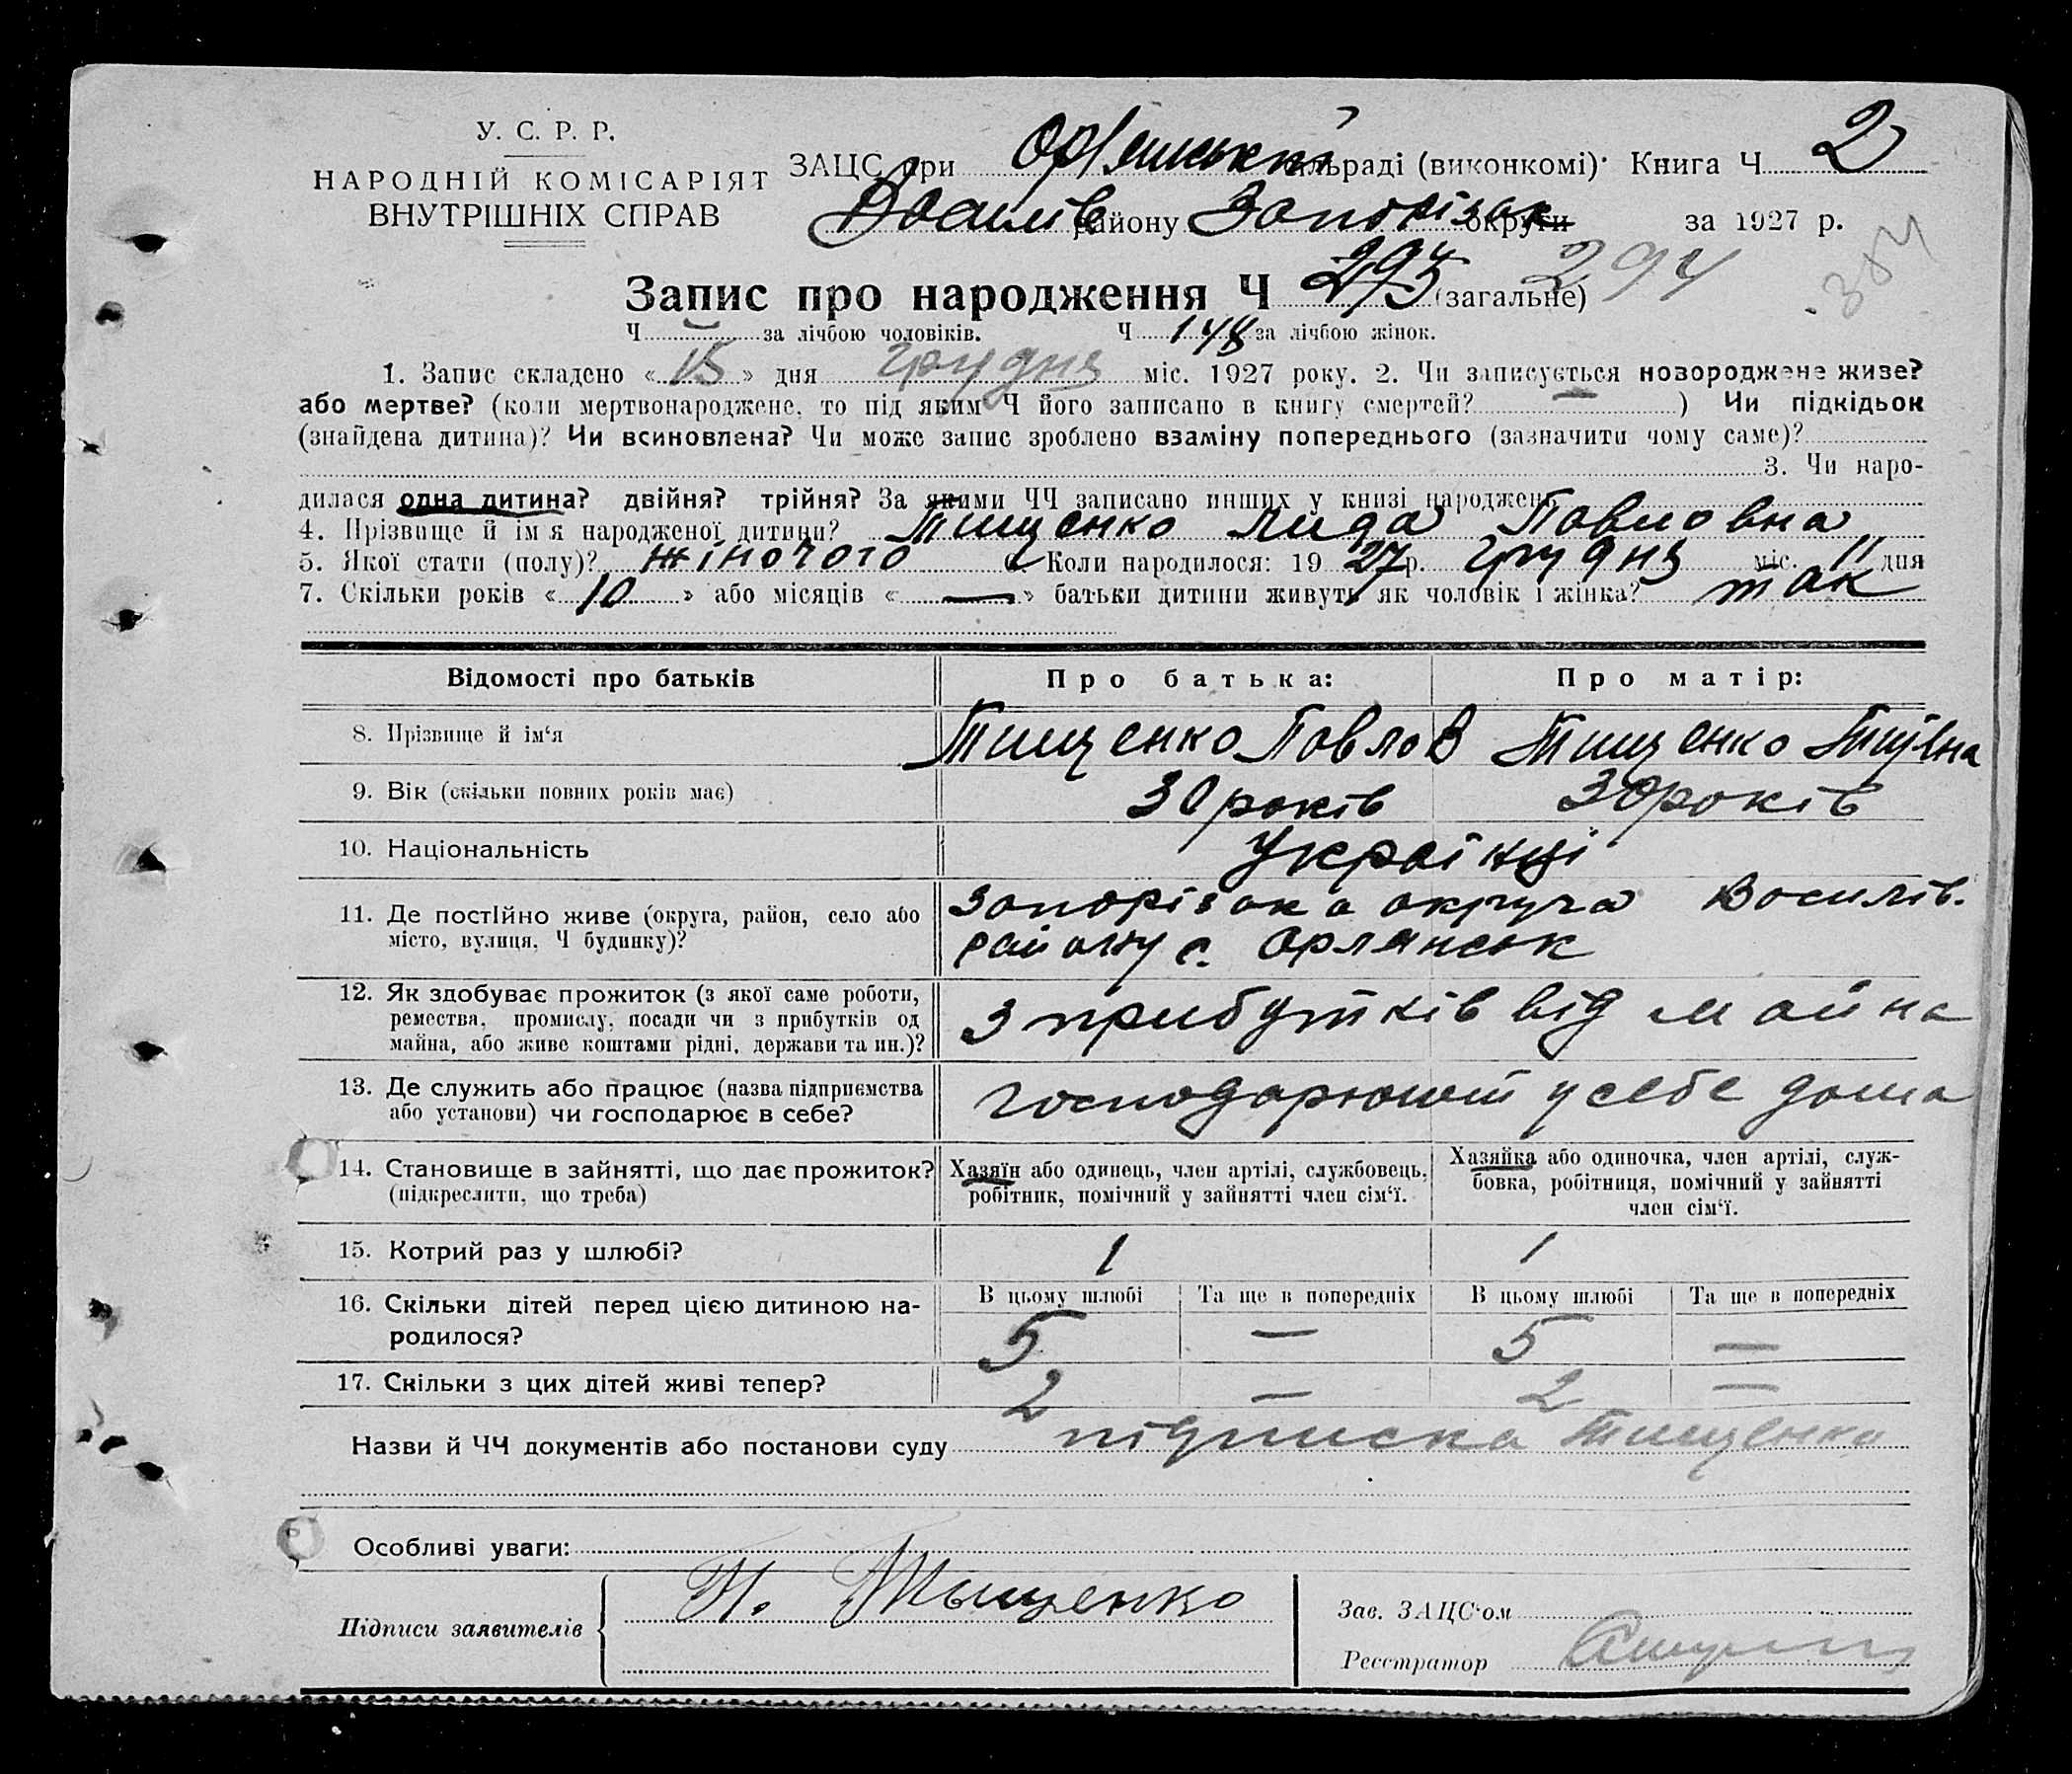 У. С. Р. Р.
НАРОДНІЙ КОМІСАРІЯТ
ВНУТРІШНІХ СПРАВ
ЗАЦС при сільраді (виконкомі) Книга Ч 2
Василів району Запорізьк округи за 1927 р.
Запис про народження Ч 295 (загальне) 294
304
Ч — за лічбою чоловіків. Ч 148 за лічбою жінок.
1. Запис складено «15» дня грудня міс. 1927 року. 2. Чи записується новороджене живе?
або мертве? (коли мертвонароджене, то під яким Ч його записано в книгу смертей? — ) Чи підкідьок
(знайдена дитина)? Чи всиновлена? Чи може запис зроблено взаміну попереднього (зазначити чому саме)?
3. Чи наро-
дилася одна дитина? двійня? трійня? За якими ЧЧ записано инших у книзі народжень
4. Прізвище й ім'я народженої дитини? Тищенко Лида Павловна
5. Якої стати (полу)? жіночого 6. Коли народилося: 1927 р. грудня міс. 11 дня
7. Скільки років «10» або місяців «—» батьки дитини живуть як чоловік і жінка? так
Відомості про батьків Про батька: Про матір:
8. Прізвище й ім'я Тищенко Павлов Тищенко
9. Вік (скільки повних років має) 30 років 30 років
10. Національність Українці
11. Де постійно живе (округа, район, село або Запорізька округа Василів.
місто, вулиця, Ч будинку)? району с. Орлянськ
12. Як здобуває прожиток (з якої саме роботи,
ремества, промислу, посади чи з прибутків од з прибутків від майна
майна, або живе коштами рідні, держави та ин.)?
13. Де служить або працює (назва підприємства господарюют у себе дома
або установи) чи господарює в себе?
14. Становище в зайнятті, що дає прожиток? Хазяїн або одинець, член артілі, службовець, Хазяйка або одиночка, член артілі, служ-
(підкреслити, що треба) робітник, помічний у зайнятті член сім'ї. бовка, робітниця, помічний у зайнятті
член сім'ї.
15. Котрий раз у шлюбі? 1 1
16. Скільки дітей перед цією дитиною на- В цьому шлюбі Та ще в попередніх В цьому шлюбі Та ще в попередніх
родилося? 5 — 5 —
17. Скільки з цих дітей живі тепер? 2 — 2 —
Назви й ЧЧ документів або постанови суду підписка Тищенко
Особливі уваги:
Підписи заявителів П. Тыщенко
Зав. ЗАЦС'ом
Реєстратор